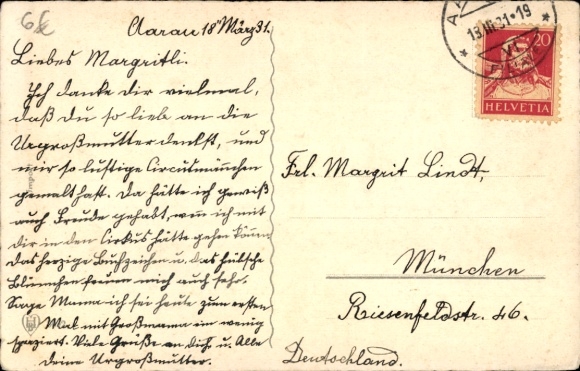 6 €
Aarau 18 März 31.
Liebes Margritli.
Ich danke dir vielmal,
daß du so lieb an die
Urgroßmutter denkst, und
mir so lustige Circusmännchen
gemalt hast. Da hätte ich gewiß
auch Freude gehabt, wen ich mit
dir in den Cirkus hätte gehen können
Das herzige Buchzeichen u. das hübsche
Blümchen freuen mich auch sehr.
Sage Mama ich sei heute zum ersten
Mal mit Großmama ein wenig
spaziert. Viele Grüße an dich u. Alle
deine Urgroßmutter.
18.III.31-19
20
HELVETIA
Frl. Margrit Lindt,
München
Riesenfeldstr. 46.
Deutschland.